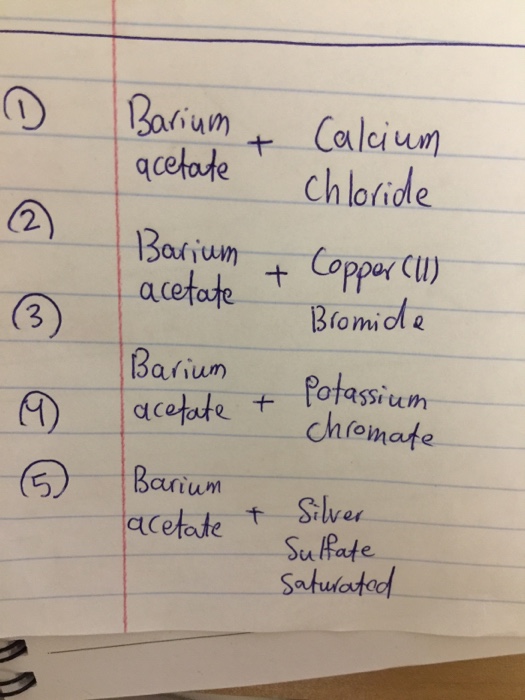 ① Barium + Calcium
acetate Chloride
②
Barium + Copper (II)
acetate Bromide
③
Barium
acetate + Potassium
④ Chromate
⑤ Barium
acetate + Silver
Sulfate
Saturated